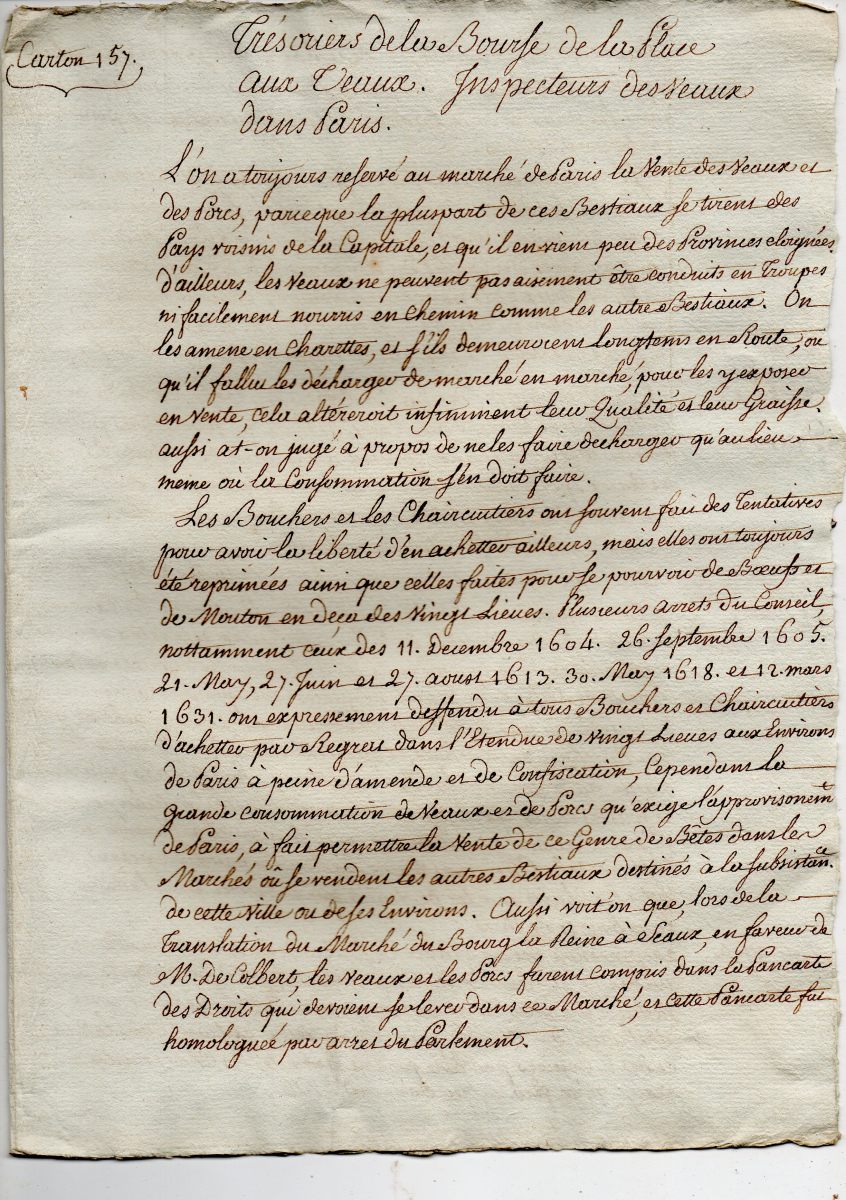 Carton 157.
Trésoriers de la Bourse de la Place
aux Veaux. Inspecteurs des Veaux
dans Paris.
L'on a toujours reservé au marché de Paris la Vente des Veaux et
des Porcs, parieque la pluspart de ces Bestiaux se tirent des
Pays voisins de la Capitale, et qu'il en vient peu des Provinces eloignées.
d'ailleurs, les Veaux ne peuvent pas aisement être conduits en Troupes
ni facilement nourris en chemin comme les autre Bestiaux. On
les amene en charettes, et s'ils demeuroient longtems en Route, ou
qu'il fallut les décharger de marché en marché, pour les y exposer
en vente, cela altéreroit infiniment leur Qualité et leur Graisse.
aussi at-on jugé à propos de ne les faire decharger qu'au lieu
meme où la Consommation s'en doit faire.
Les Bouchers et les Chaircuitiers ont souvent fait des Tentatives
pour avoir la liberté d'en achetter ailleurs, mais elles ont toujours
été reprimées ainsi que celles faites pour se pourvoir de Bœufs et
de Mouton en deça des vingt Lieues. Plusieurs arrets du Conseil,
nottamment ceux des 11. Decembre 1604. 26. septembre 1605.
21. May, 27. Juin et 27. aoust 1613. 30. May 1618. et 12. mars
1631. ont expressement deffendu à tous Bouchers et Chaircuitiers
d'achetter par Regrat dans l'Etendue de vingt Lieues aux Environs
de Paris à peine d'amende et de Confiscation, Cependant la
grande consommation de Veaux et de Porcs qu'exige l'approvisonemt
de Paris, à fait permettre la Vente de ce Genre de Bêtes dans le
Marchés où se vendent les autres Bestiaux destinés à la subsistance.
de cette Ville ou de ses Environs. Aussi voit'on que, lors de la
Translation du Marché du Bourg la Reine à Sceaux, en faveur de
M. De Colbert, les Veaux et les Porcs furent compris dans la Pancarte
des Droits qui devoient se lever dans ce Marché, et cette Pancarte fut
homologuée par arret du Parlement.